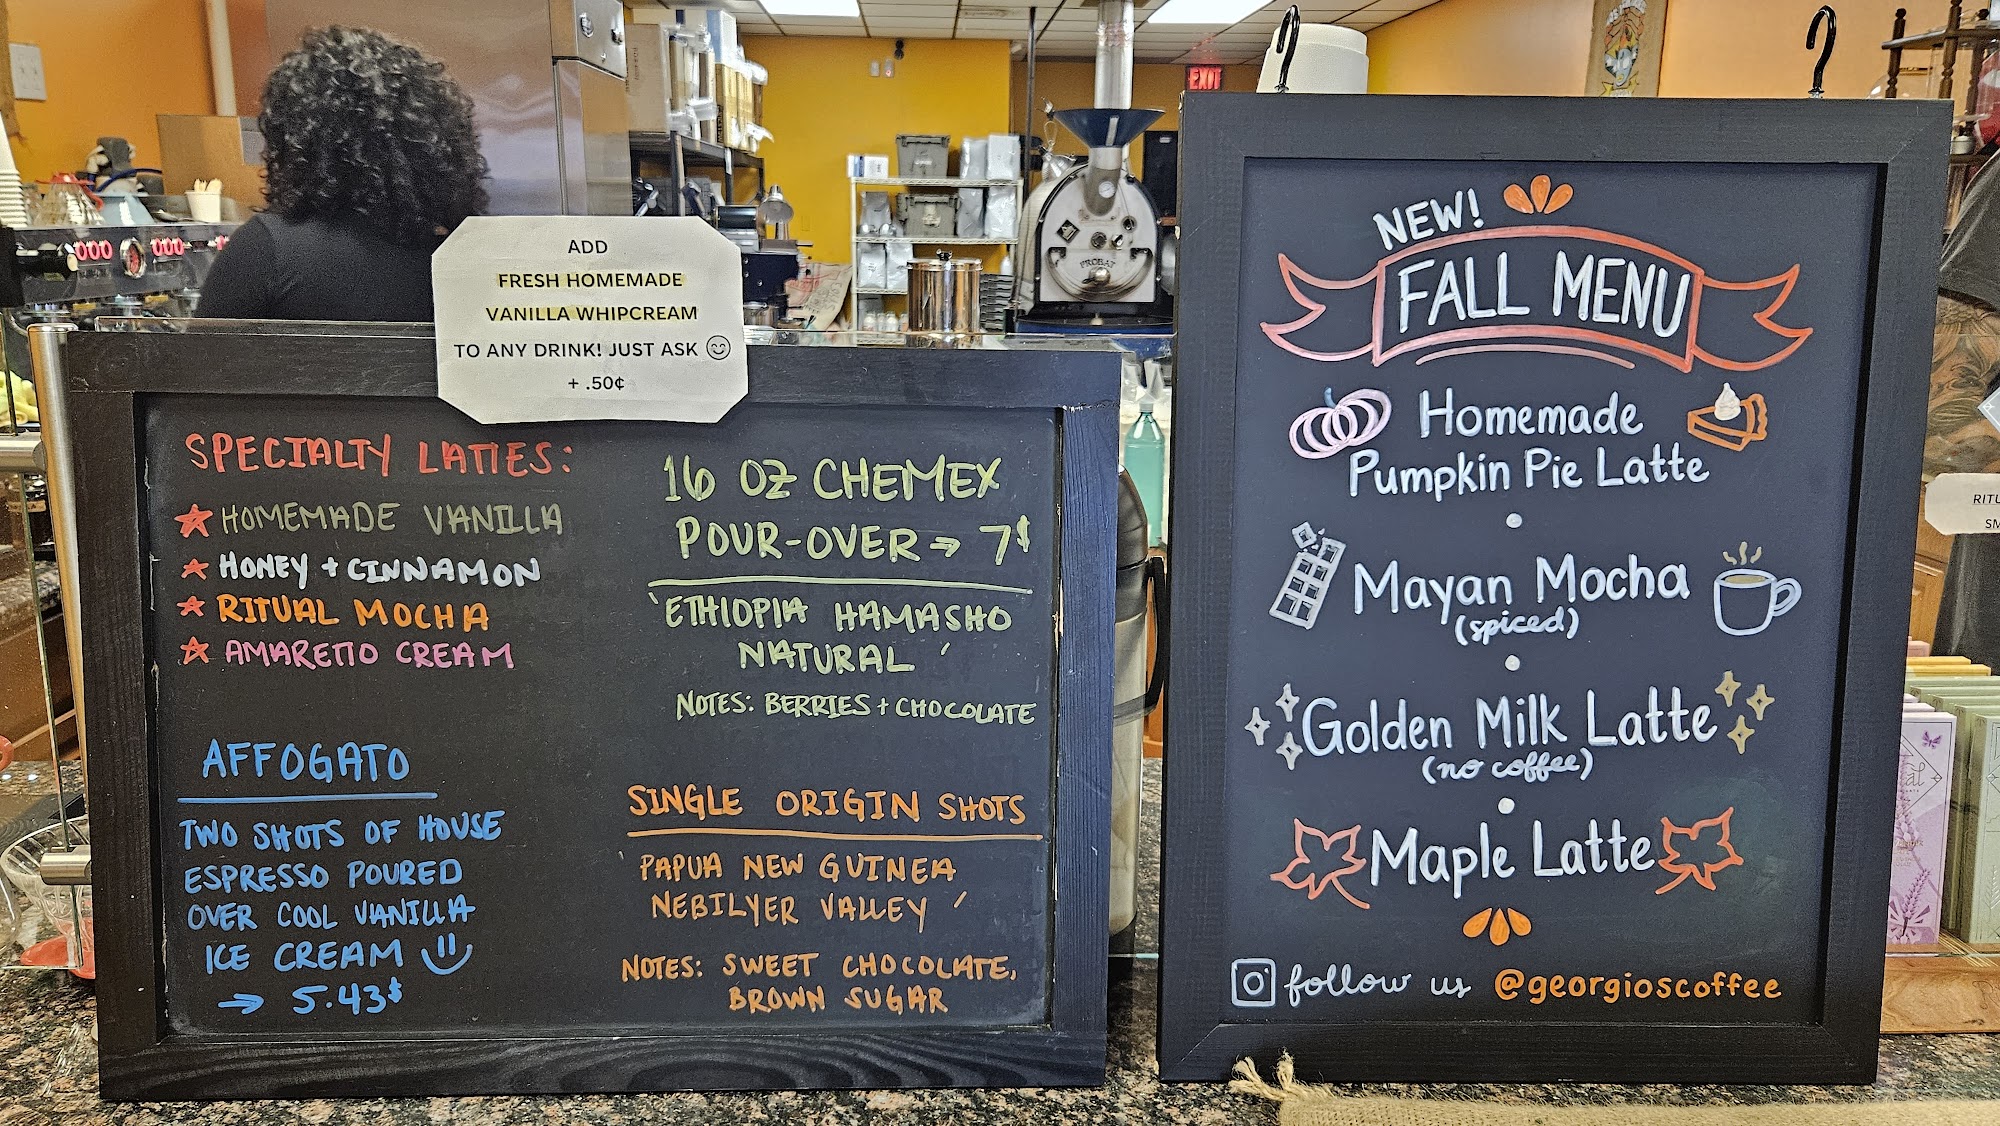 ADD
FRESH HOMEMADE
VANILLA WHIPCREAM
TO ANY DRINK! JUST ASK 😊
+ .50¢
SPECIALTY LATTES:
HOMEMADE VANILLA
HONEY + CINNAMON
RITUAL MOCHA
AMARETTO CREAM
AFFOGATO
TWO SHOTS OF HOUSE
ESPRESSO POURED
OVER COOL VANILLA
ICE CREAM
→ 5.43$
16 OZ CHEMEX
POUR-OVER → 7$
'ETHIOPIA HAMASHO
NATURAL'
NOTES: BERRIES + CHOCOLATE
SINGLE ORIGIN SHOTS
'PAPUA NEW GUINEA
NEBILYER VALLEY'
NOTES: SWEET CHOCOLATE,
BROWN SUGAR
NEW!
FALL MENU
Homemade
Pumpkin Pie Latte
Mayan Mocha
(spiced)
Golden Milk Latte
(no coffee)
Maple Latte
follow us @georgioscoffee
EXIT
PROBAT
000
000